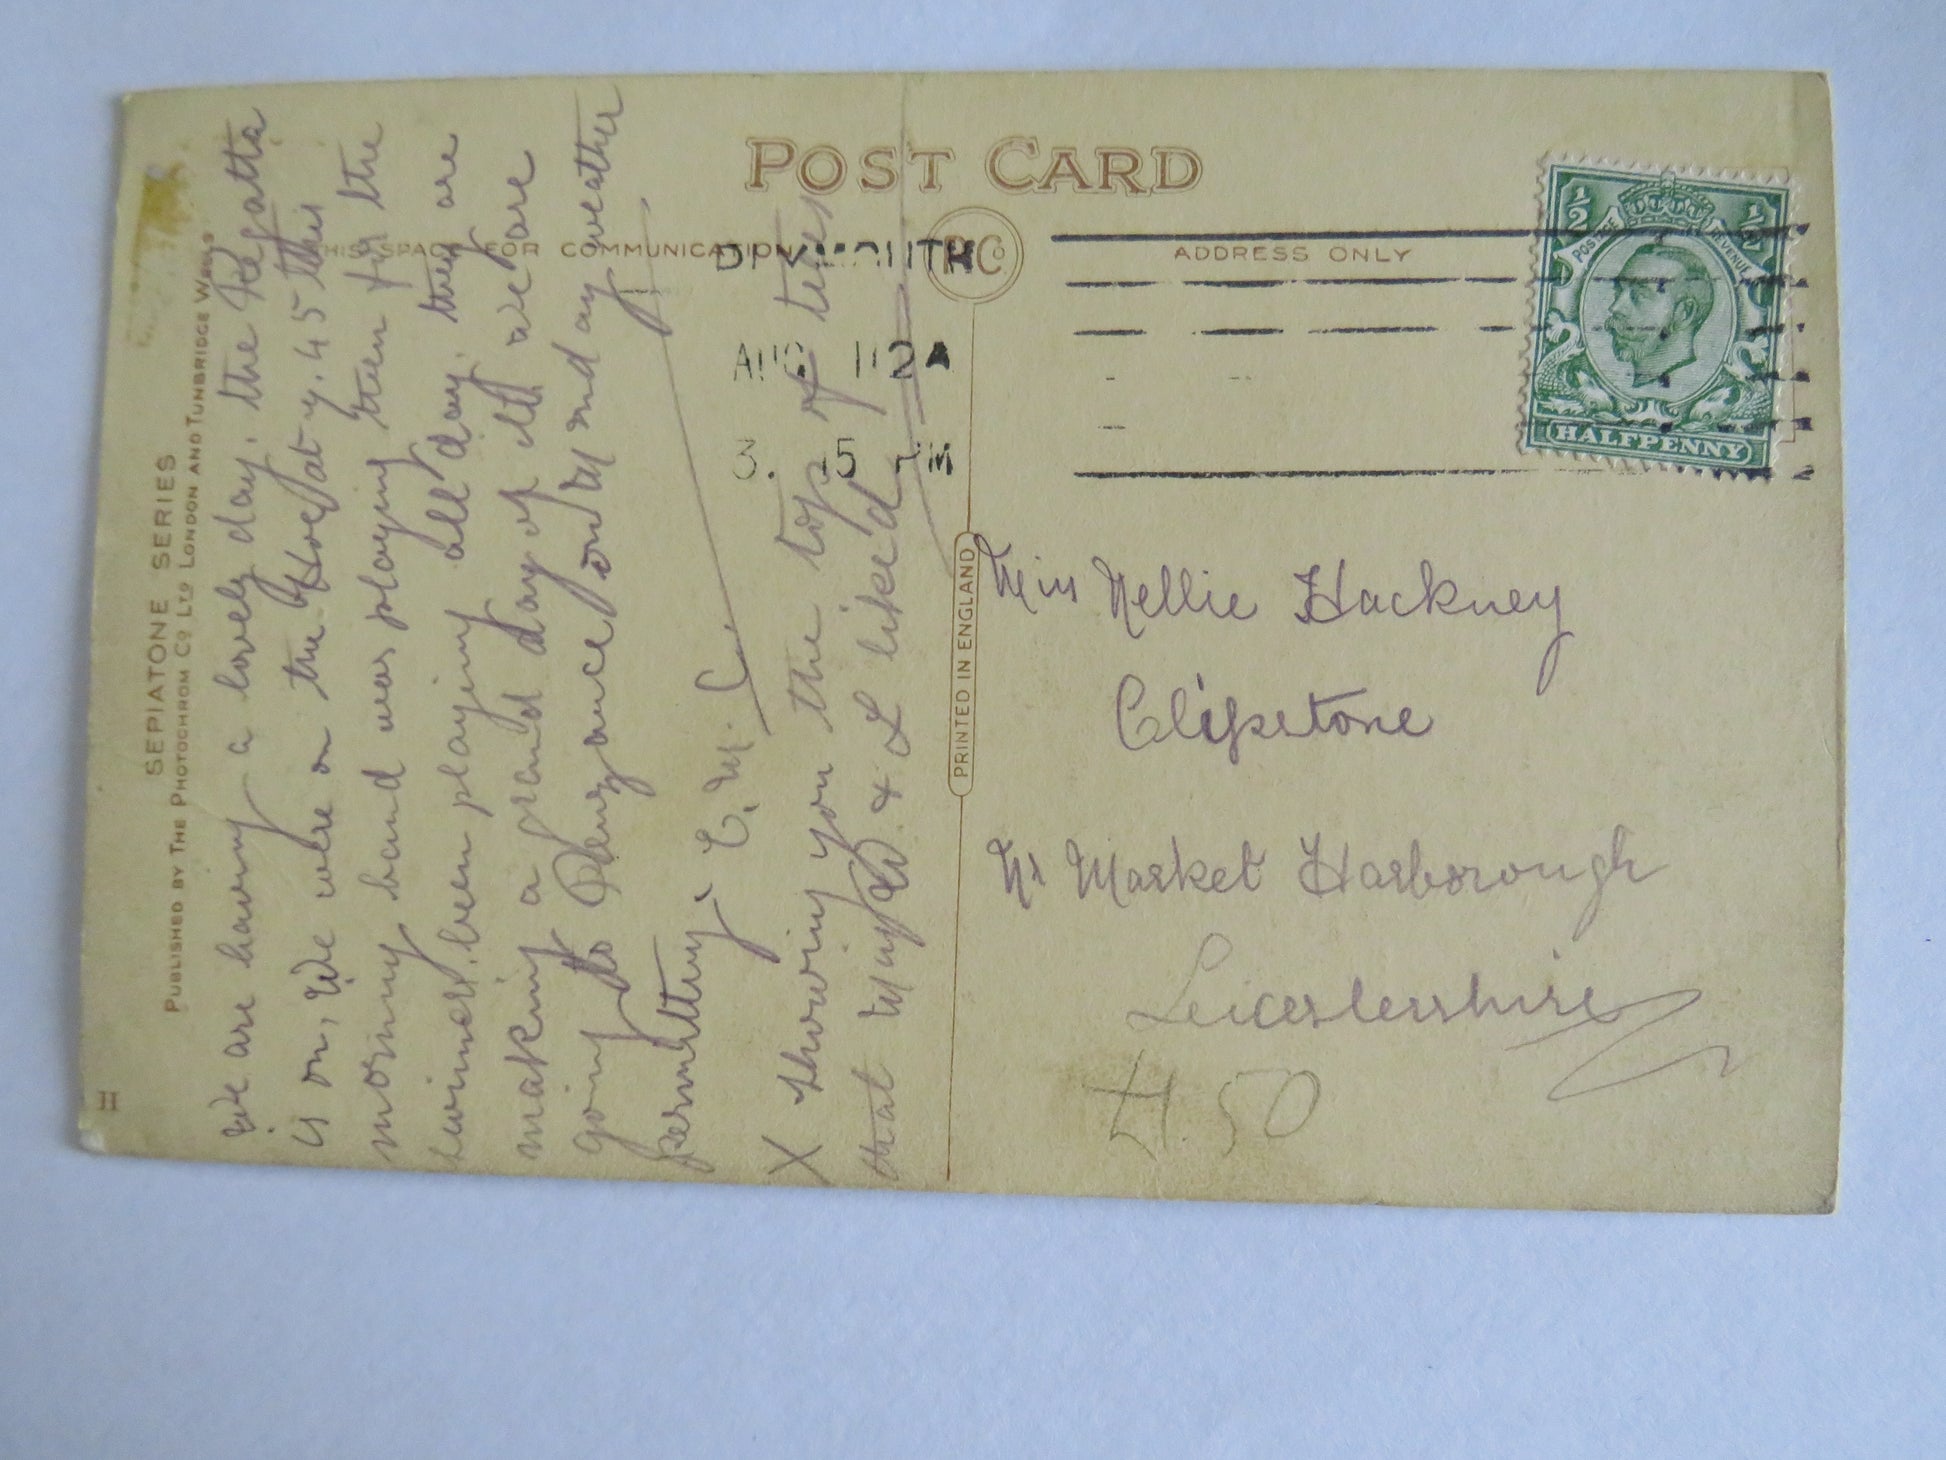 POST CARD
THIS SPACE FOR COMMUNICATION
ADDRESS ONLY
P Co
PLYMOUTH
AUG 12 A
3. 15 PM
1/2 1/2
POSTAGE REVENUE
HALFPENNY
SEPIATONE SERIES
PUBLISHED BY THE PHOTOCHROM CO LTD LONDON AND TUNBRIDGE WELLS
H
We are having a lovely day, the Regatta
is on, We were on the Hoe at 9.45 this
morning band was playing then for the
been playing all day. they are
making a grand day of it. we are
going to Penzance on M ond ay weather
permitting E. M. C.
X showing you the top of
that & L liked
PRINTED IN ENGLAND
Miss Nellie Hackney
Clipstone
Nr Market Harborough
Leicestershire
4.50